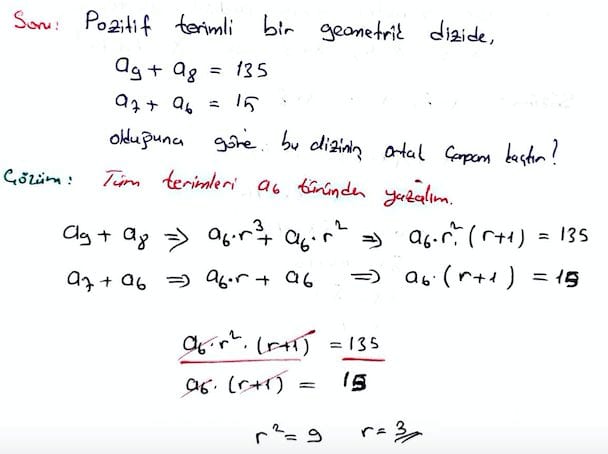 Soru: Pozitif terimli bir geometrik dizide,
a₉ + a₈ = 135
a₇ + a₆ = 15
olduğuna göre, bu dizinin ortak çarpanı kaçtır?
Çözüm: Tüm terimleri a₆ türünden yazalım.
a₉ + a₈ ⇒ a₆.r³ + a₆.r² ⇒ a₆.r².(r+1) = 135
a₇ + a₆ ⇒ a₆.r + a₆ ⇒ a₆.(r+1) = 15
a₆.r².(r+1) = 135
a₆.(r+1) = 15
r² = 9 r = 3